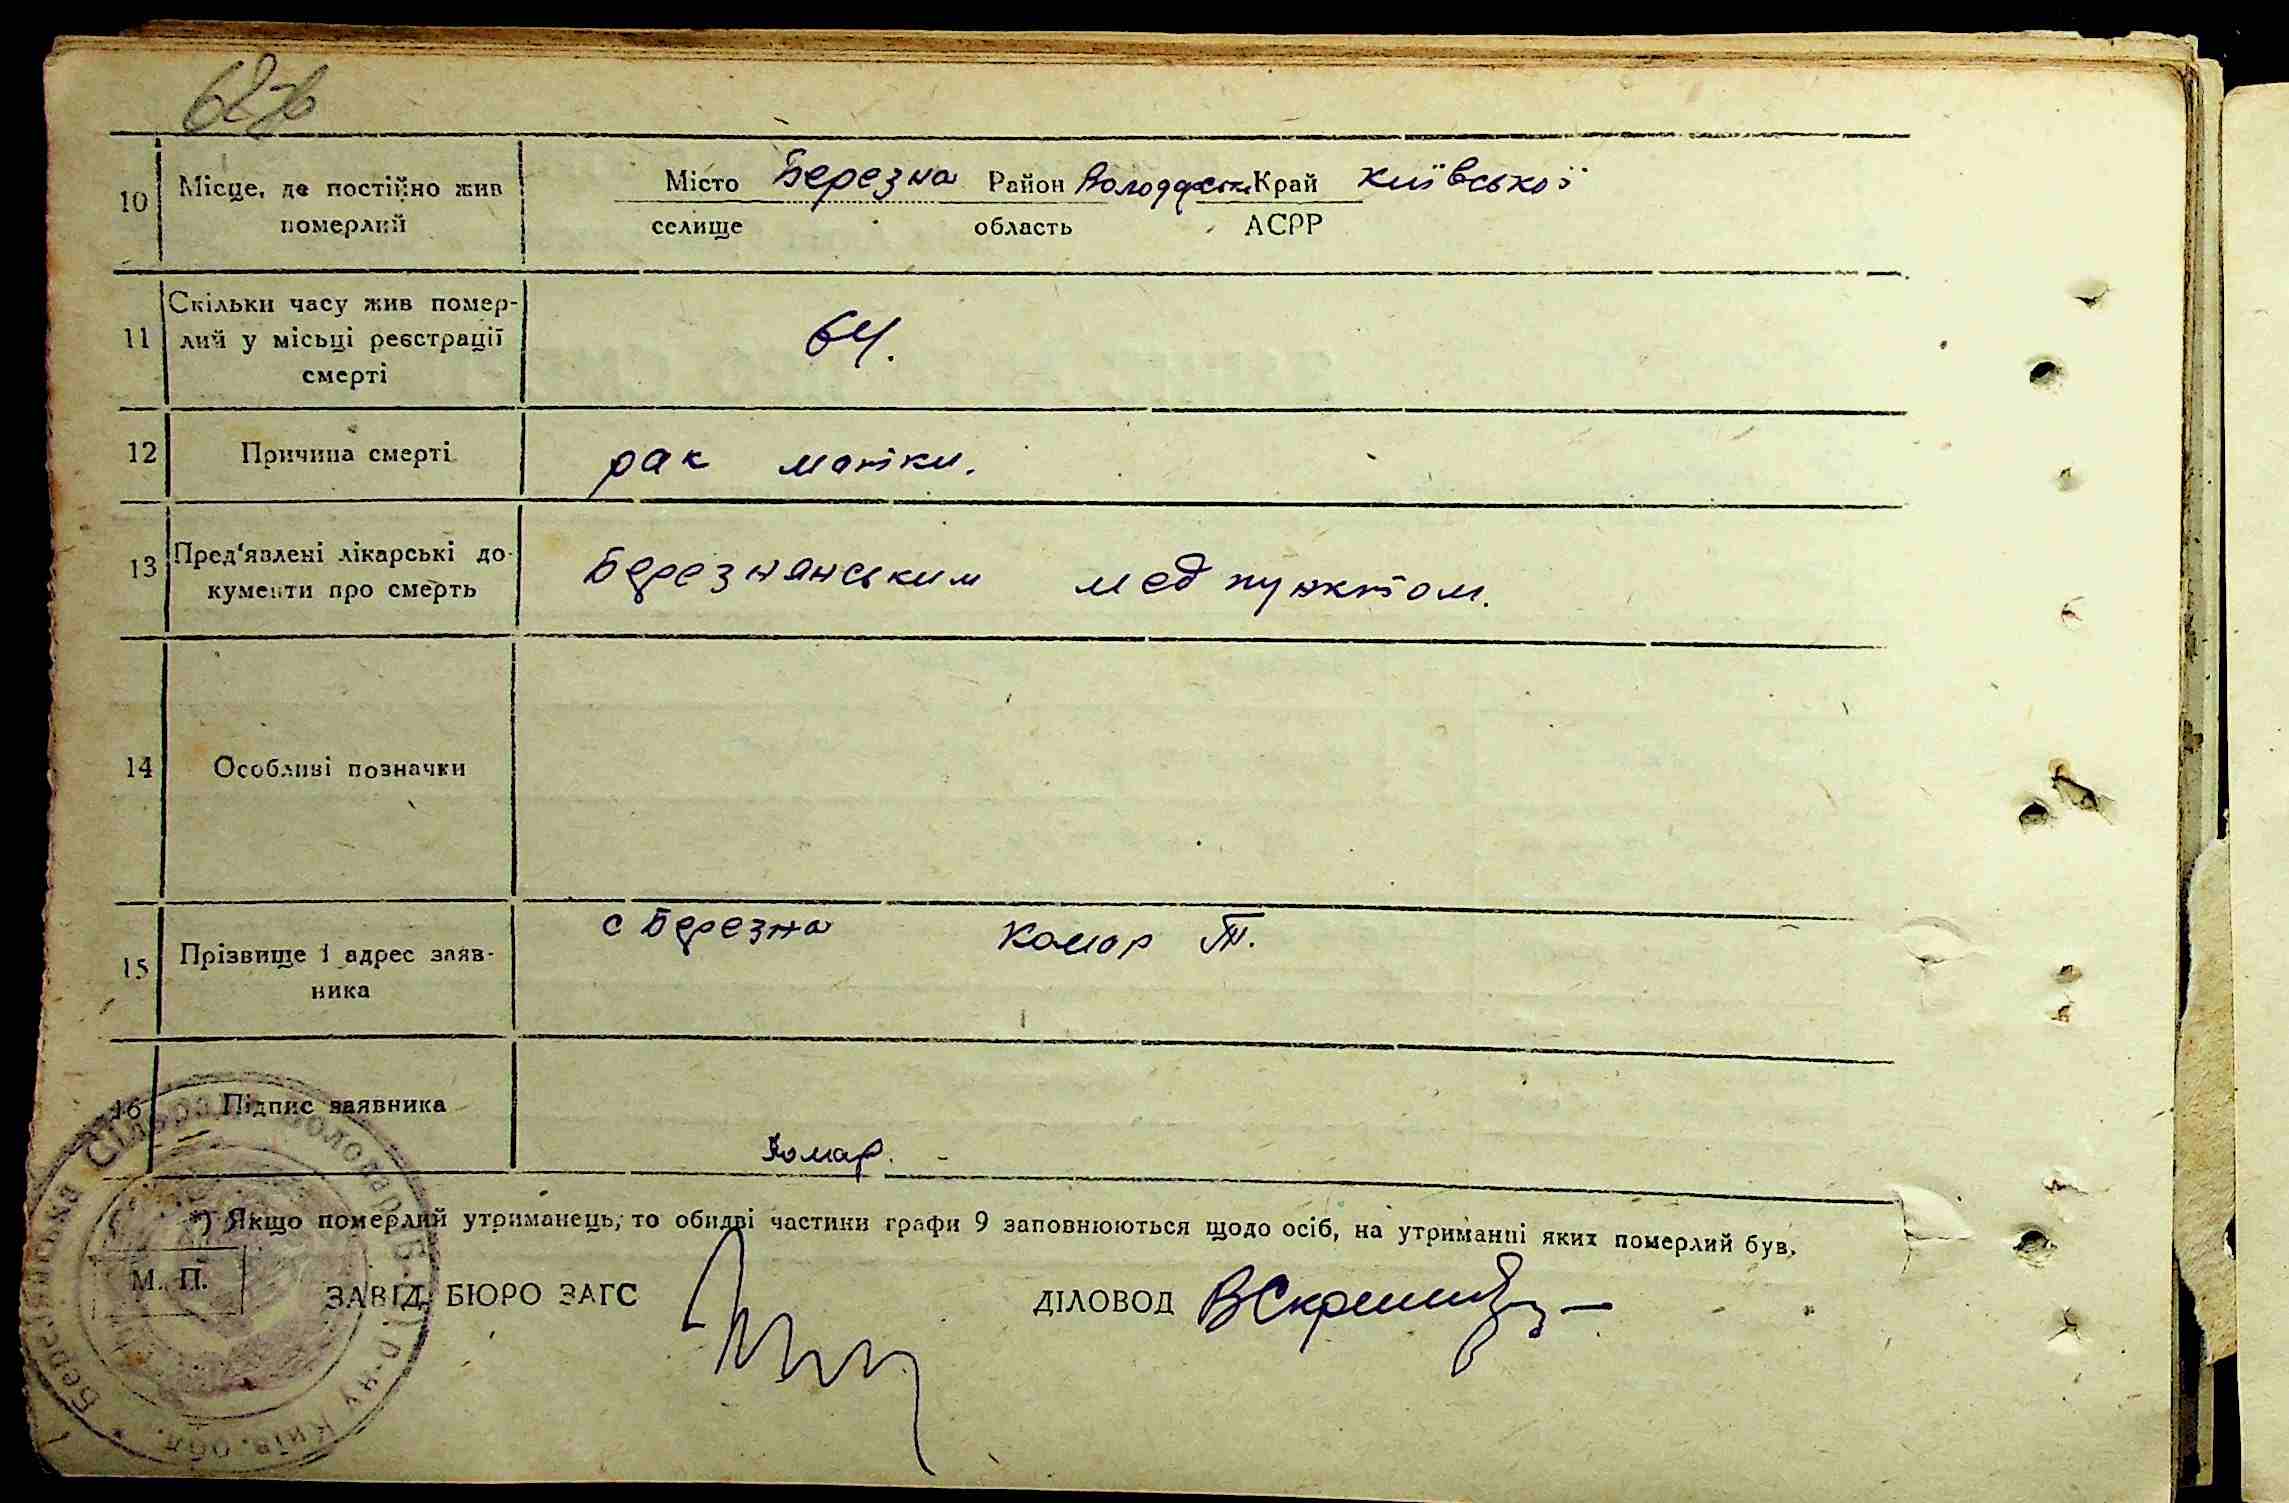 10 Місце, де постійно жив померлий
Місто Березна Район Володарськ Край київської
селище область АСРР
11 Скільки часу жив помер-
лий у місьці реєстрації
смерті
64.
12 Причина смерті
рак матки.
13 Пред'явлені лікарські до-
кументи про смерть
Березнянським мед пунктом.
14 Особливі позначки
15 Прізвище і адрес заяв-
ника
с Березна Комар Т.
16 Підпис заявника
Комар.
*) Якщо померлий утриманець, то обидві частини графи 9 заповнюються щодо осіб, на утриманні яких померлий був.
М. П.
ЗАВІД. БЮРО ЗАГС
ДІЛОВОД